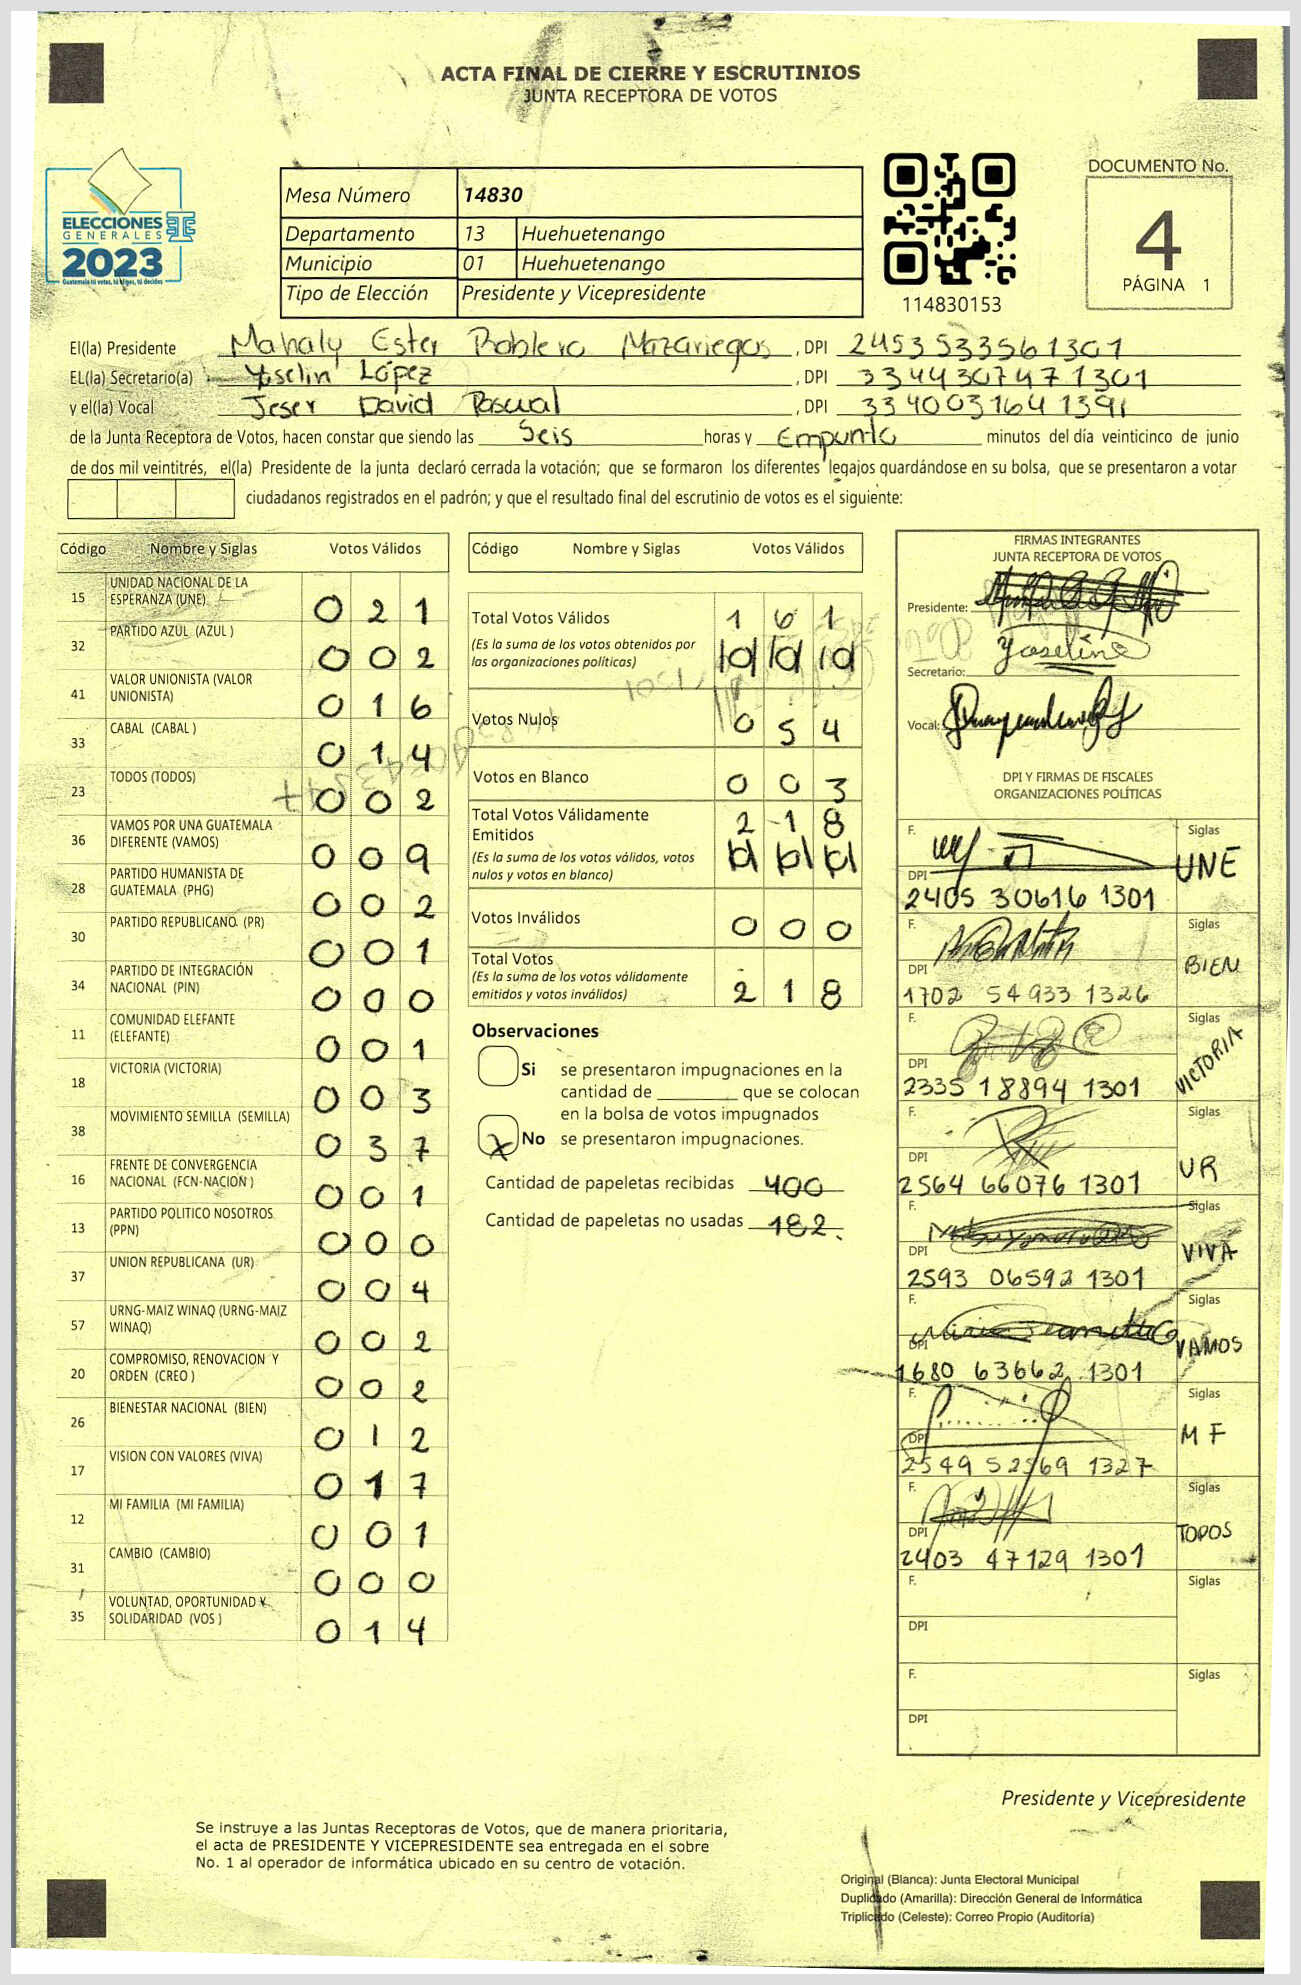 ACTA FINAL DE CIERRE Y ESCRUTINIOS
JUNTA RECEPTORA DE VOTOS
ELECCIONES
GENERALES
2023
Guatemala tú votas, tú eliges, tú decides
Mesa Número 14830
Departamento 13 Huehuetenango
Municipio 01 Huehuetenango
Tipo de Elección Presidente y Vicepresidente
114830153
DOCUMENTO No.
4
PÁGINA 1
El(la) Presidente Mahaly Ester Roblero Mazariegos, DPI 2453533561301
EL(la) Secretario(a) Yoselin López, DPI 3344307471301
y el(la) Vocal Jeser David Pascual, DPI 3340031641391
de la Junta Receptora de Votos, hacen constar que siendo las Seis horas y Empunto minutos del día veinticinco de junio
de dos mil veintitrés, el(la) Presidente de la junta declaró cerrada la votación; que se formaron los diferentes legajos guardándose en su bolsa, que se presentaron a votar
ciudadanos registrados en el padrón; y que el resultado final del escrutinio de votos es el siguiente:
Código Nombre y Siglas Votos Válidos
15 UNIDAD NACIONAL DE LA ESPERANZA (UNE) 0 2 1
32 PARTIDO AZUL (AZUL ) 0 0 2
41 VALOR UNIONISTA (VALOR UNIONISTA) 0 1 6
33 CABAL (CABAL ) 0 1 4
23 TODOS (TODOS) 0 0 2
36 VAMOS POR UNA GUATEMALA DIFERENTE (VAMOS) 0 0 9
28 PARTIDO HUMANISTA DE GUATEMALA (PHG) 0 0 2
30 PARTIDO REPUBLICANO (PR) 0 0 1
34 PARTIDO DE INTEGRACIÓN NACIONAL (PIN) 0 0 0
11 COMUNIDAD ELEFANTE (ELEFANTE) 0 0 1
18 VICTORIA (VICTORIA) 0 0 3
38 MOVIMIENTO SEMILLA (SEMILLA) 0 3 7
16 FRENTE DE CONVERGENCIA NACIONAL (FCN-NACION ) 0 0 1
13 PARTIDO POLITICO NOSOTROS (PPN) 0 0 0
37 UNION REPUBLICANA (UR) 0 0 4
57 URNG-MAIZ WINAQ (URNG-MAIZ WINAQ) 0 0 2
20 COMPROMISO, RENOVACION Y ORDEN (CREO ) 0 0 2
26 BIENESTAR NACIONAL (BIEN) 0 1 2
17 VISION CON VALORES (VIVA) 0 1 7
12 MI FAMILIA (MI FAMILIA) 0 0 1
31 CAMBIO (CAMBIO) 0 0 0
35 VOLUNTAD, OPORTUNIDAD Y SOLIDARIDAD (VOS ) 0 1 4
Código Nombre y Siglas Votos Válidos
Total Votos Válidos 1 6 1
(Es la suma de los votos obtenidos por
las organizaciones políticas)
Votos Nulos 0 5 4
Votos en Blanco 0 0 3
Total Votos Válidamente Emitidos 2 1 8
(Es la suma de los votos válidos, votos
nulos y votos en blanco)
Votos Inválidos 0 0 0
Total Votos 2 1 8
(Es la suma de los votos válidamente
emitidos y votos inválidos)
Observaciones
Si se presentaron impugnaciones en la
cantidad de ________ que se colocan
en la bolsa de votos impugnados
X No se presentaron impugnaciones.
Cantidad de papeletas recibidas 400
Cantidad de papeletas no usadas 182.
FIRMAS INTEGRANTES
JUNTA RECEPTORA DE VOTOS
Presidente:
Secretario: Yoseline
Vocal:
DPI Y FIRMAS DE FISCALES
ORGANIZACIONES POLÍTICAS
F. Siglas UNE
DPI 2405 30616 1301
F. Siglas BIEN
DPI 1702 54933 1326
F. Siglas VICTORIA
DPI 2335 18894 1301
F. Siglas UR
DPI 2564 66076 1301
F. Siglas VIVA
DPI 2593 06592 1301
F. Siglas VAMOS
DPI 1680 63662 1301
F. Siglas MF
DPI 2549 52569 1327
F. Siglas TODOS
DPI 2403 47129 1301
F. Siglas
DPI
F. Siglas
DPI
Presidente y Vicepresidente
Se instruye a las Juntas Receptoras de Votos, que de manera prioritaria,
el acta de PRESIDENTE Y VICEPRESIDENTE sea entregada en el sobre
No. 1 al operador de informática ubicado en su centro de votación.
Original (Blanca): Junta Electoral Municipal
Duplicado (Amarilla): Dirección General de Informática
Triplicado (Celeste): Correo Propio (Auditoría)